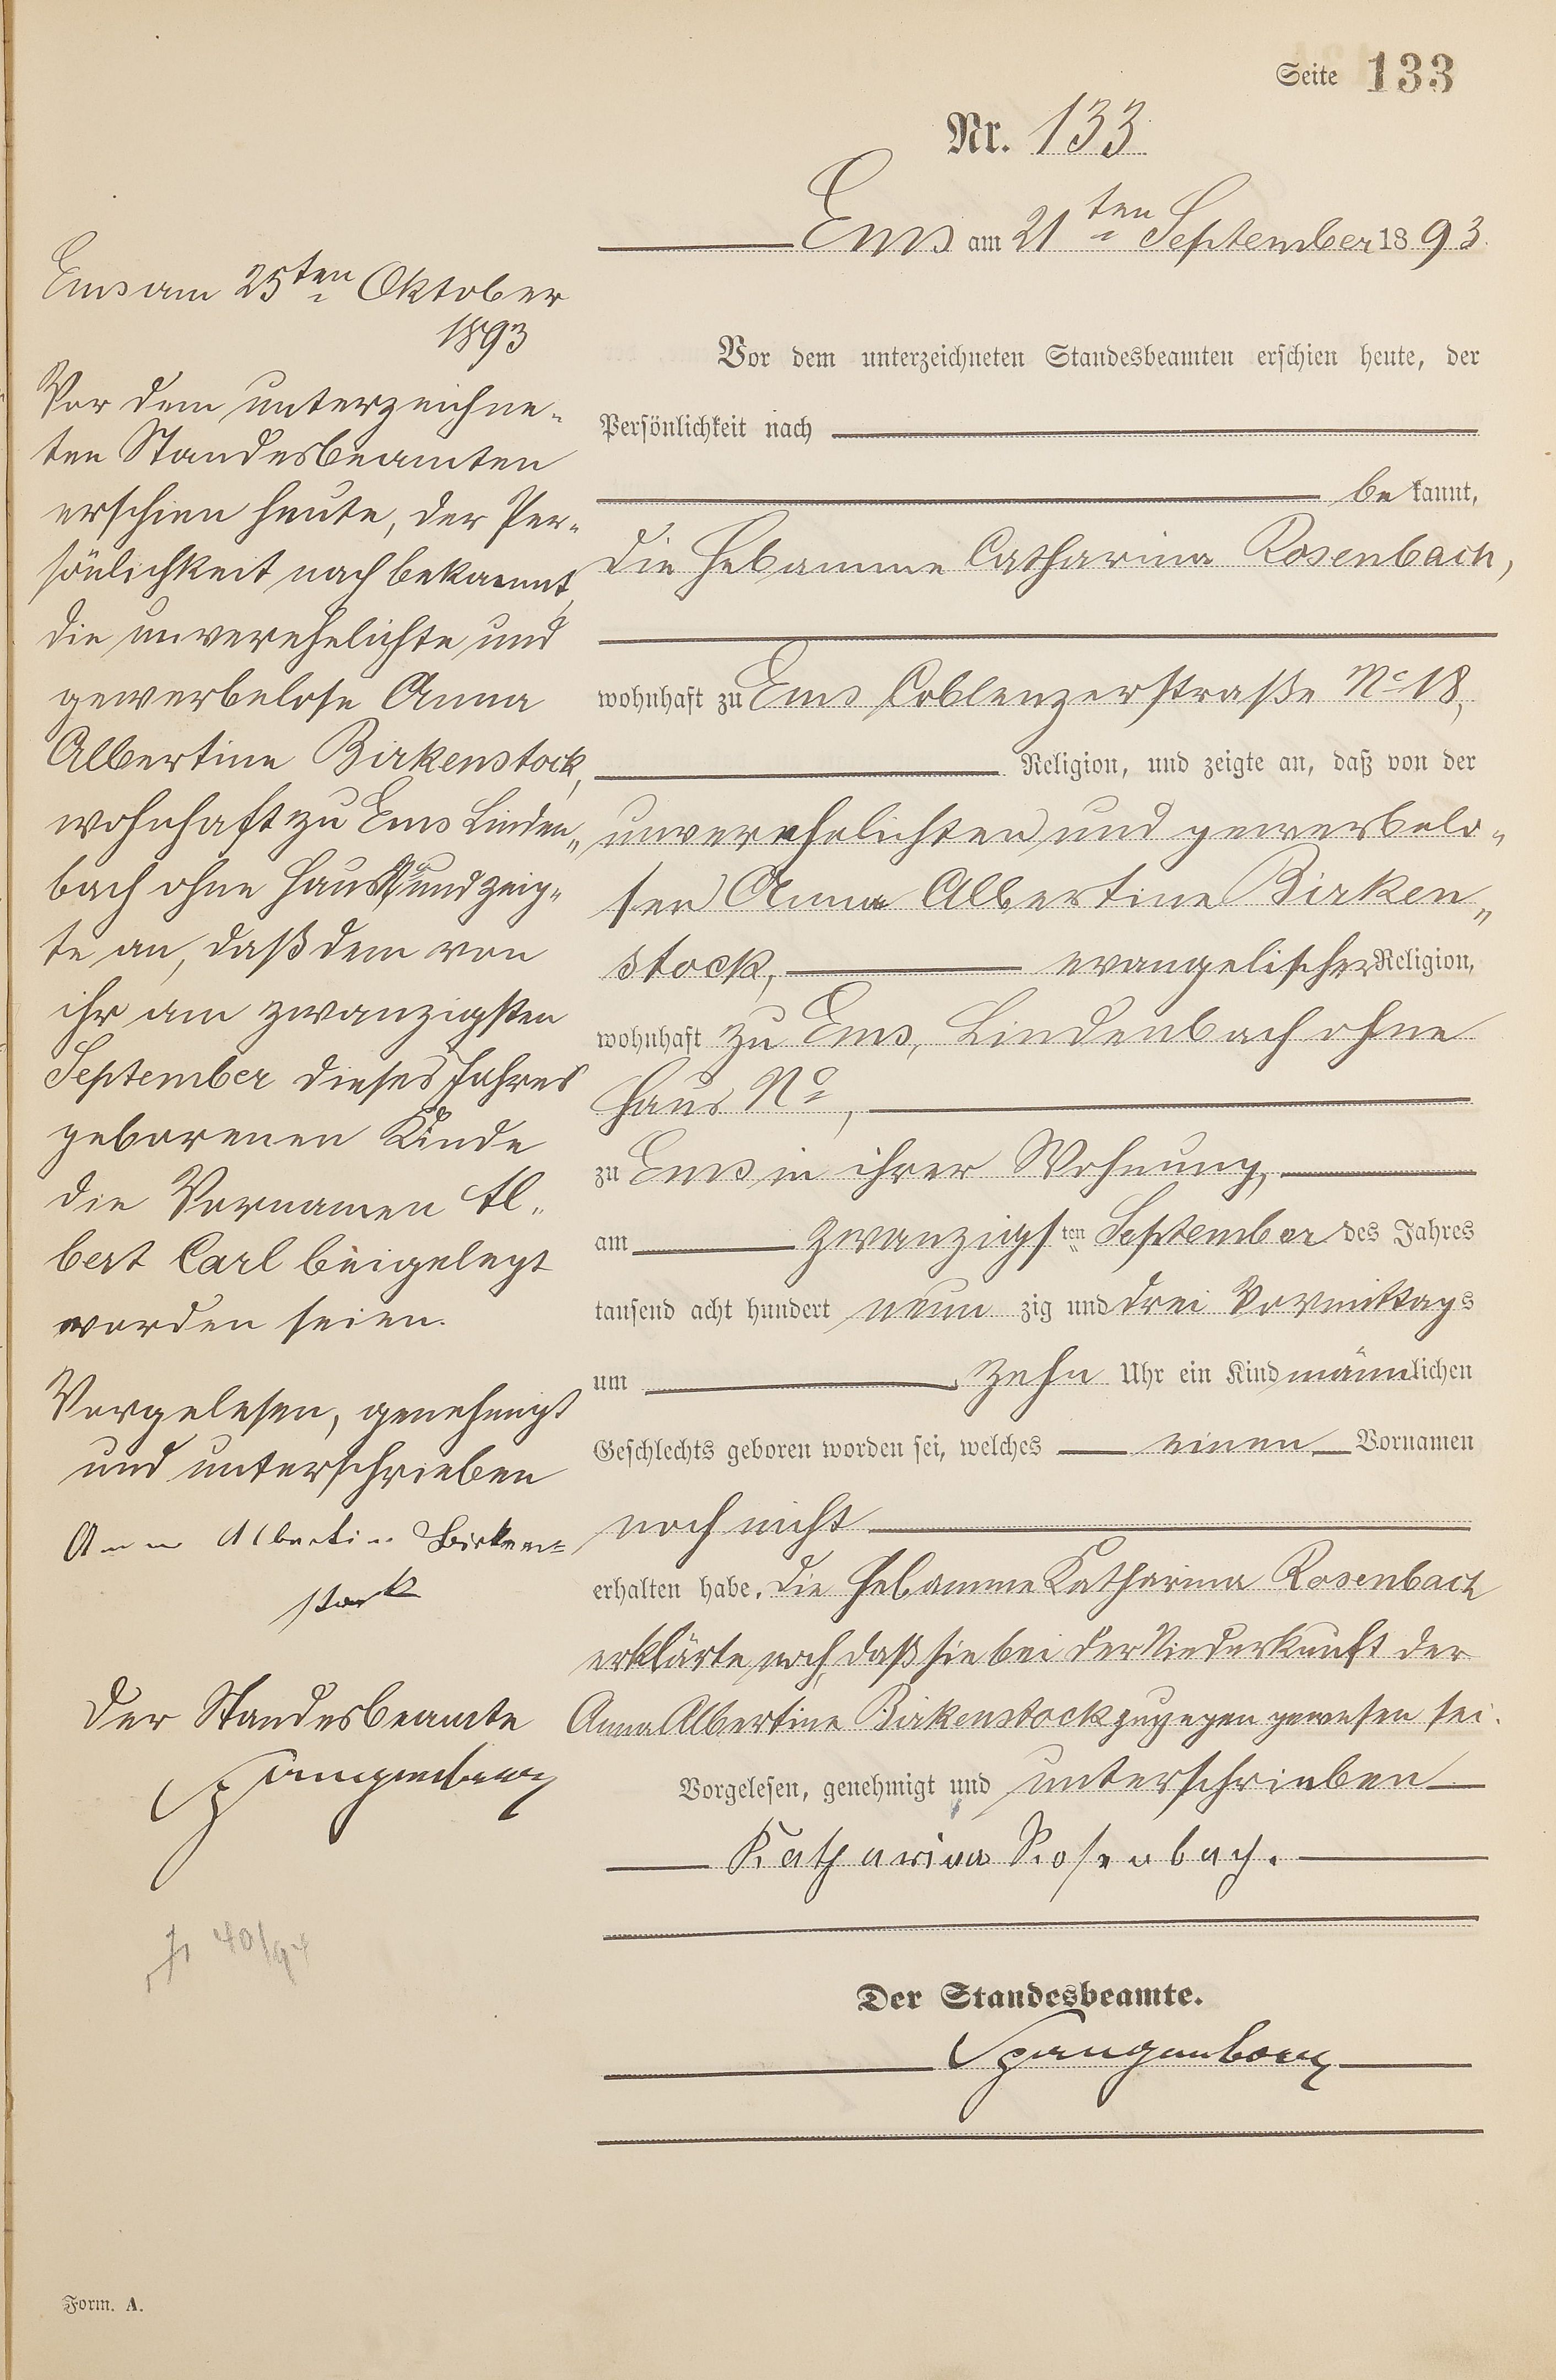 Seite 133
Nr. 133
Ems am 21ten September 1893.
Vor dem unterzeichneten Standesbeamten erschien heute, der
Persönlichkeit nach
bekannt,
die Hebamme Catharina Rosenbach,
wohnhaft zu Ems Coblenzerstraße No 18,
Religion, und zeigte an, daß von der
unverehelichten und gewerbelo-
sen Anna Albertine Birken-
stock, evangelischer Religion,
wohnhaft zu Ems, Lindenbach ohne
Haus No,
zu Ems in ihrer Wohnung,
am zwanzigsten September des Jahres
tausend acht hundert neunzig und drei Vormittags
um zehn Uhr ein Kind männlichen
Geschlechts geboren worden sei, welches einen Vornamen
noch nicht
erhalten habe. Die Hebamme Katharina Rosenbach
erklärte noch, daß sie bei der Niederkunft der
Anna Albertine Birkenstock zugegen gewesen sei.
Vorgelesen, genehmigt und unterschrieben
Katharina Rosenbach.
Der Standesbeamte.
Spangenberg
Ems am 25ten Oktober
1893
Vor dem unterzeichne-
ten Standesbeamten
erschien heute, der Per-
sönlichkeit nach bekannt,
die unverehelichte und
gewerbelose Anna
Albertine Birkenstock,
wohnhaft zu Ems Linden-
bach ohne Haus No und zeig-
te an, daß dem von
ihr am zwanzigsten
September dieses Jahres
geborenen Kinde
die Vornamen Al-
bert Carl beigelegt
worden seien.
Vorgelesen, genehmigt
und unterschrieben
Anna Albertine Birken-
stock
Der Standesbeamte
Spangenberg
40/94
Form. A.